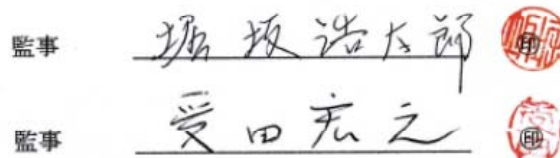 監事 堀坂浩太郎 印
監事 受田宏之 印